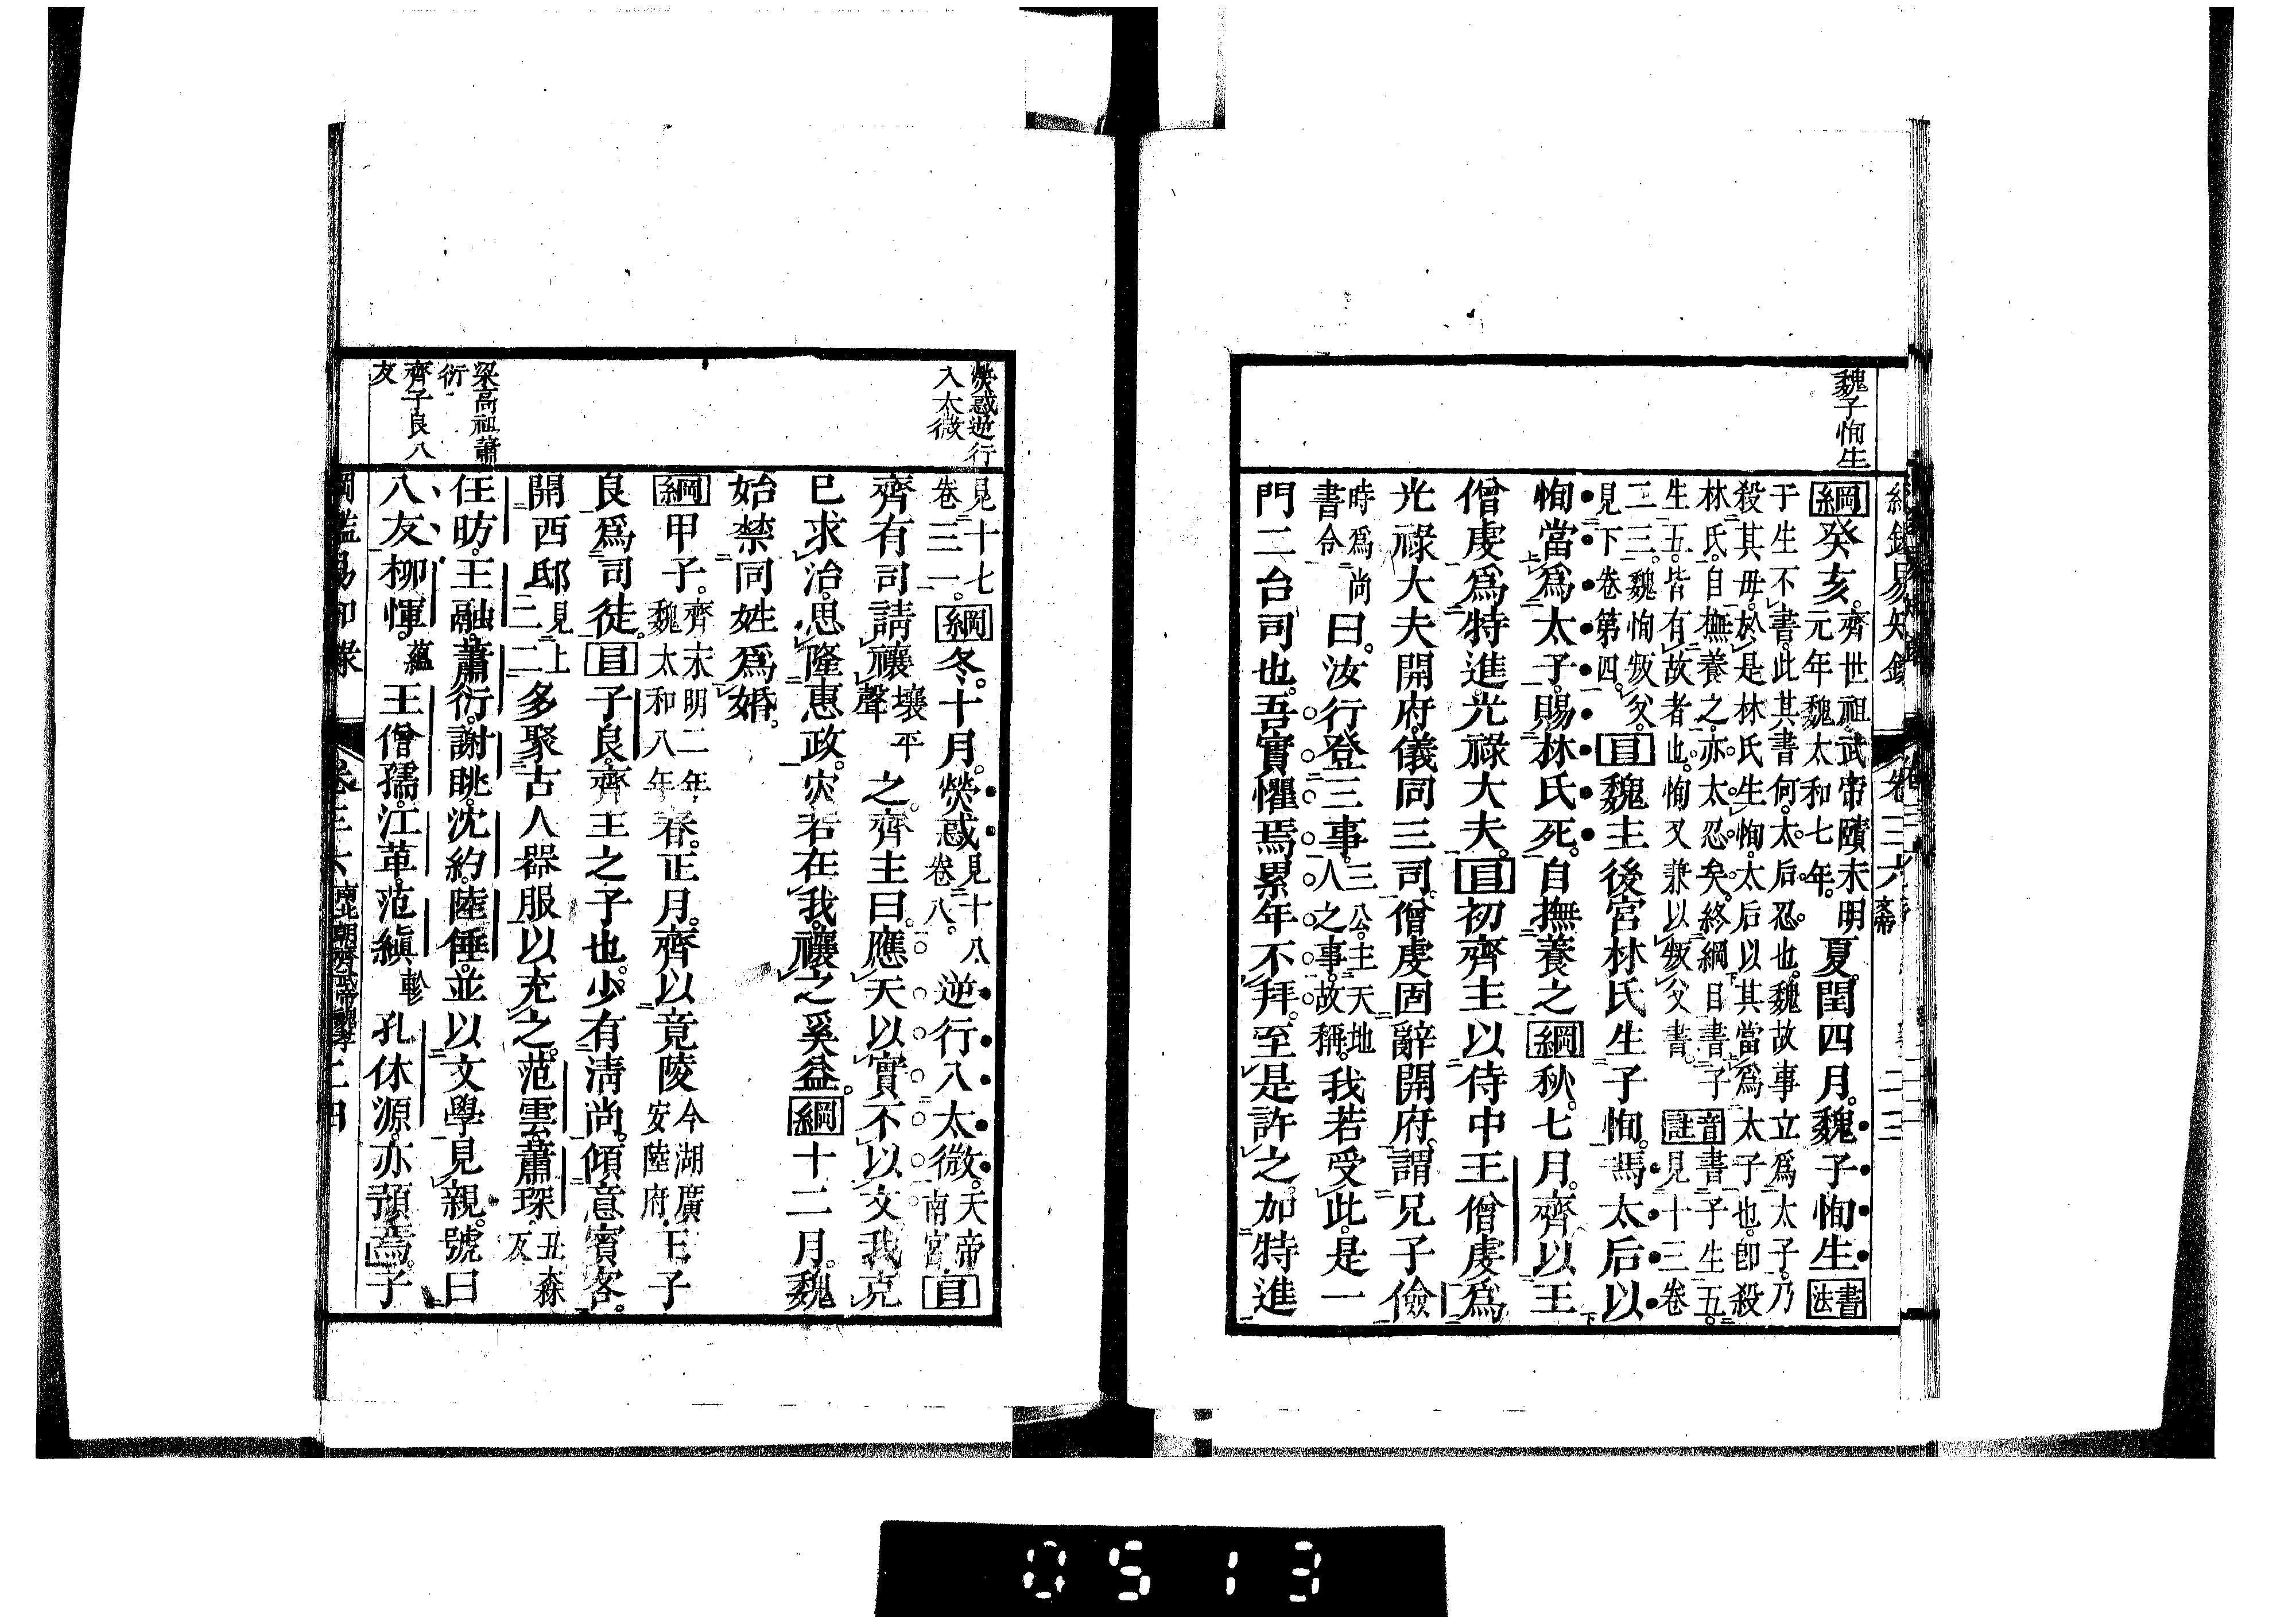 魏子恂生
綱鑑易知錄 卷三六 二三
綱癸亥。齊世祖武帝賾永明元年魏太和七年。夏。閏四月。魏子恂生書法
于生不書。此其書何。太后忍也。魏故事立爲太子。乃
殺其毋。於是林氏生恂。太后以其當爲太子也。卽殺
林氏。自撫養之。亦太忍矣。終綱目書子
生五。皆有故者也。恂又兼以叛父書。音註書子生五。見十三卷
二三。魏恂叛父。見下卷第四。目魏主後宮林氏生子恂。馮太后以
恂當爲太子。賜林氏死。自撫養之綱秋。七月。齊以王
僧虔爲特進。光祿大夫。目初齊主以侍中王僧虔爲
光祿大夫開府儀同三司。僧虔固辭開府。謂兄子儉
時爲尚書令曰。汝行登三事。三公。主天地人之事。故稱。我若受此。是一
門二台司也。吾實懼焉。累年不拜。至是許之。加特進
熒惑逆行
入太微
見十七卷三一。綱冬。十月。熒惑見十八卷八。逆行入太微。天帝南宮目
齊有司請禳壤平聲之。齊主曰。應天以實不以文我克
已求治。思隆惠政。灾若在我。禳之奚益。綱十二月。魏
始禁同姓爲婚。
綱甲子。齊永明二年魏太和八年春。正月。齊以竟陵今湖廣安陸府王子
良爲司徒。目子良。齊主之子也。少有淸尚。傾意賓客。
梁高祖蕭
衍
開西邸見上二二多聚古人器服以充之。范雲。蕭琛丑森反
齊子良八
友
任昉。王融。蕭衍。謝眺。沈約。陸倕。並以文學見親。號曰
八友柳惲。蘊王僧孺。江革。范縝軫孔休源。亦預焉。子
綱鑑易知錄 卷三六 南北朝齊武帝魏孝 二四
0513